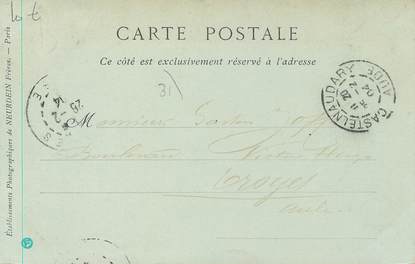 10 €
CARTE POSTALE
Ce côté est exclusivement réservé à l'adresse
31)
Établissements Photographiques de NEURDEIN Frères. — Paris
CASTELNAUDARY AUDE
Monsieur Gaston
Boulevard Victor Hugo
Troyes
Aube